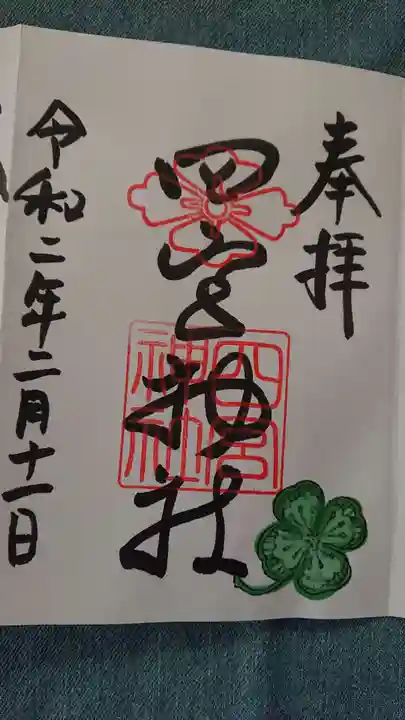 奉拝
四宮神社
四宮
神社
令和二年二月十一日